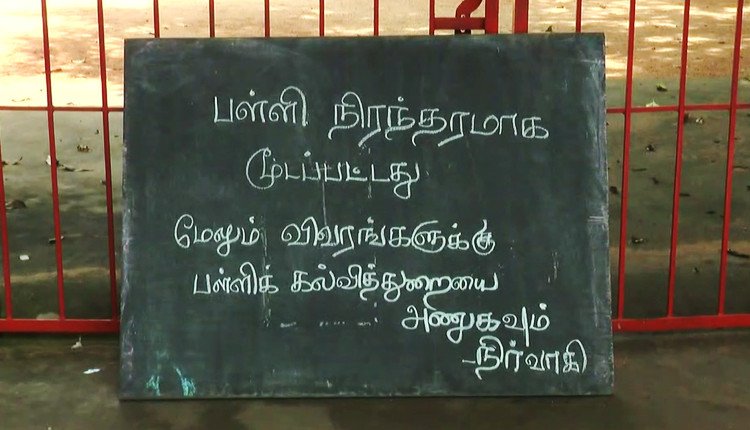 பள்ளி நிரந்தரமாக
மூடப்பட்டது
மேலும் விவரங்களுக்கு
பள்ளிக் கல்வித்துறையை
அணுகவும்
-நிர்வாகி